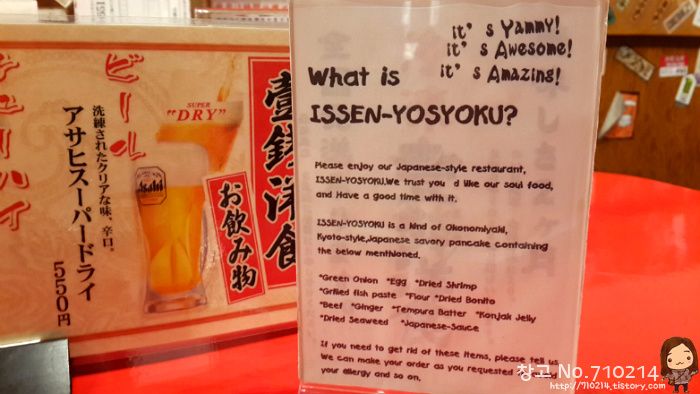 it's Yammy!
it's Awesome!
it's Amazing!
What is
ISSEN-YOSYOKU?
Please enjoy our Japanese-style restaurant,
ISSEN-YOSYOKU.We trust you d like our soul food,
and Have a good time with it.
ISSEN-YOSYOKU is a kind of Okonomiyaki,
Kyoto-style,Japanese savory pancake containing
the below menthioned.
*Green Onion *Egg *Dried Shrimp
*Grilled fish paste *Flour *Dried Bonito
*Beef *Ginger *Tempura Batter *Konjak Jelly
*Dried Seaweed *Japanese-Sauce
If you need to get rid of these items, please tell us.
We can make your order as you requested
your allergy and so on.
壹錢洋食
お飲み物
SUPER
"DRY"
Asahi
ビール
洗練されたクリアな味、辛口。
アサヒスーパードライ
550円
チューハイ
창고 No.710214
http://710214.tistory.com